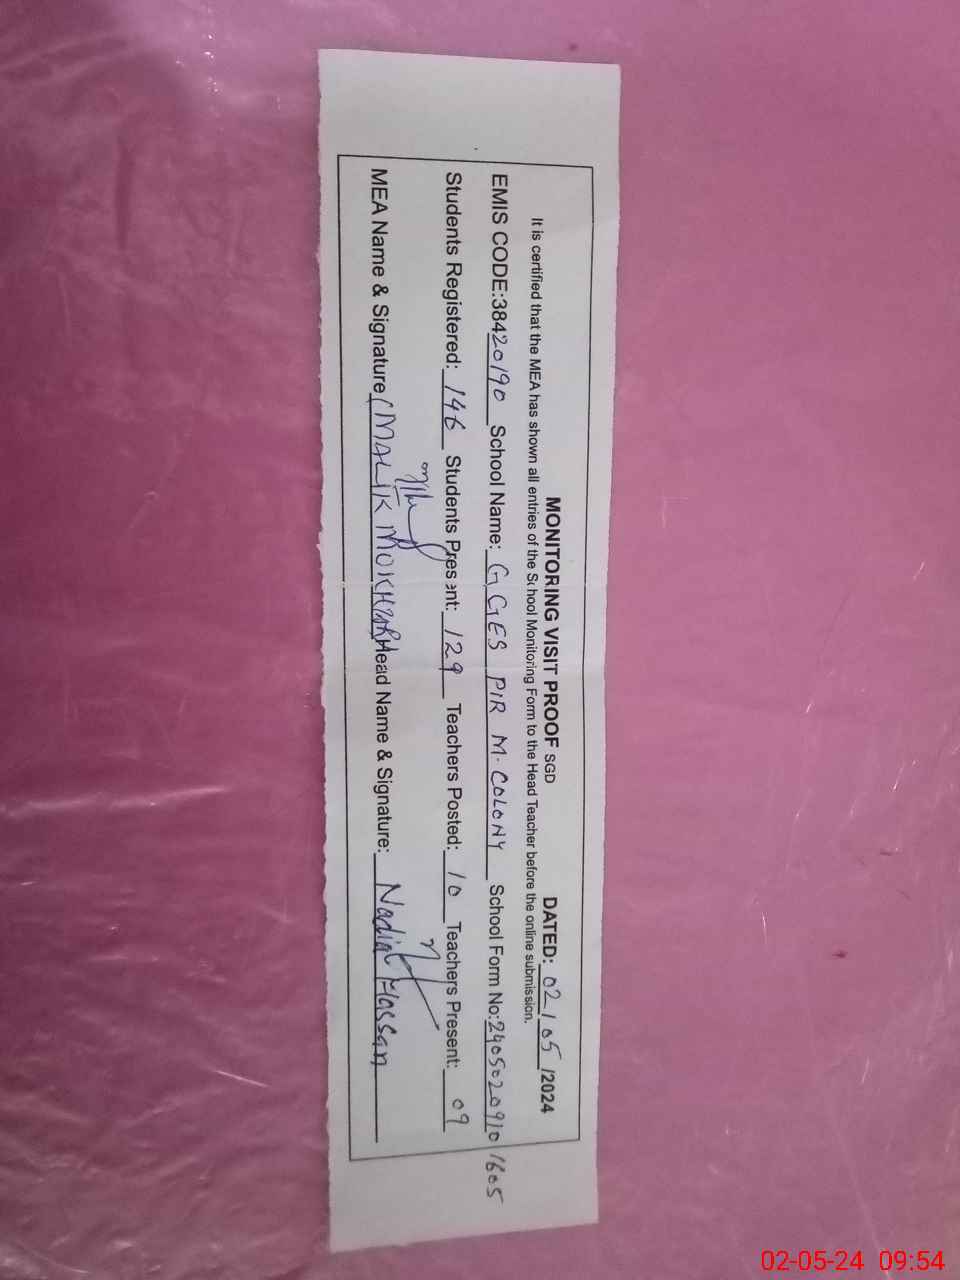 MONITORING VISIT PROOF SGD DATED: 02/05/2024
It is certified that the MEA has shown all entries of the School Monitoring Form to the Head Teacher before the online submission.
EMIS CODE:38420190 School Name: GGES PIR M. COLONY School Form No:24050209101605
Students Registered: 146 Students Present: 129 Teachers Posted: 10 Teachers Present: 09
MEA Name & Signature (MALIK MOKHTAR) Head Name & Signature: Nadia Hassan
02-05-24 09:54